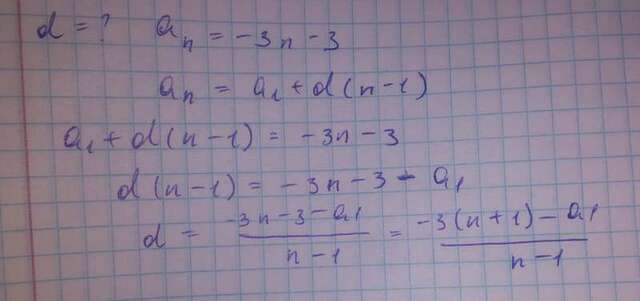 d = ? aₙ = -3n - 3
aₙ = a₁ + d(n-1)
a₁ + d(n-1) = -3n - 3
d(n-1) = -3n - 3 - a₁
d = \frac{-3n-3-a₁}{n-1} = \frac{-3(n+1)-a₁}{n-1}